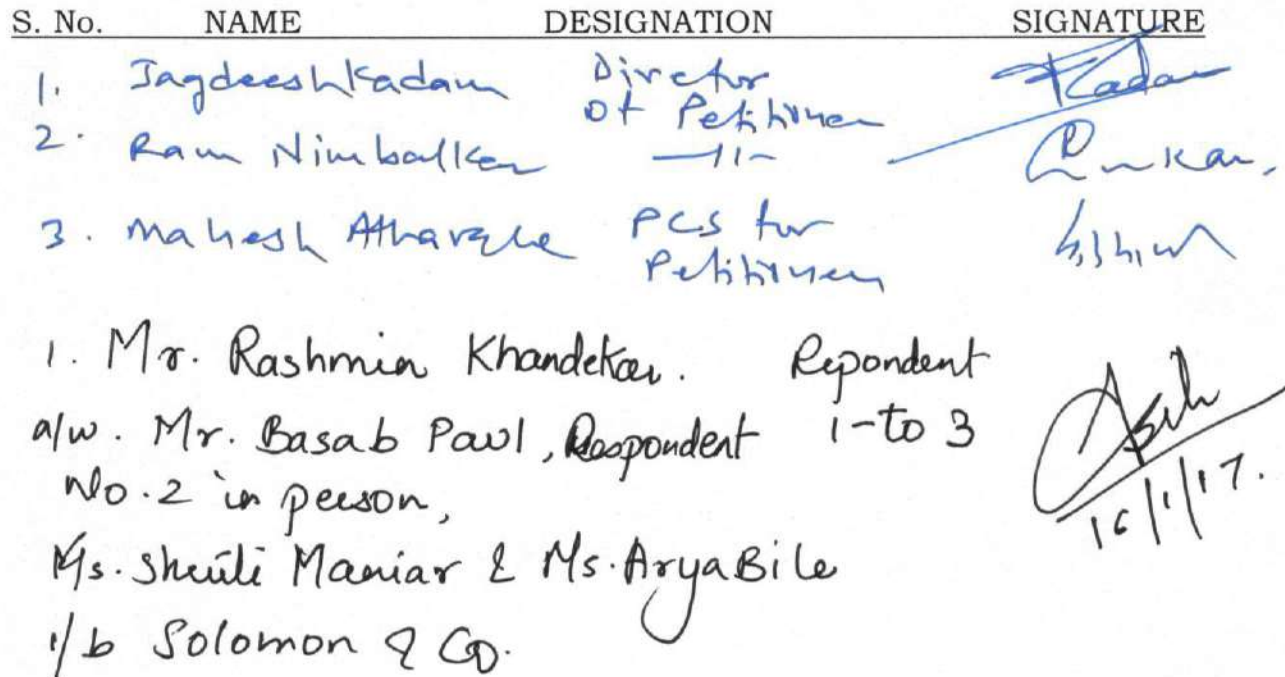 S. No. NAME DESIGNATION SIGNATURE
1. Jagdeesh Kadam Director of Petitioner Kadam
2. Ram Nimbalkar —11—
3. Mahesh Athavale PCS for Petitioner
1. Mr. Rashmin Khandekar. Repondent
a/w. Mr. Basab Paul, Respondent 1-to 3
No. 2 in person,
Ms. Shruti Maniar & Ms. Arya Bile
i/b Solomon & Co.
16/1/17.